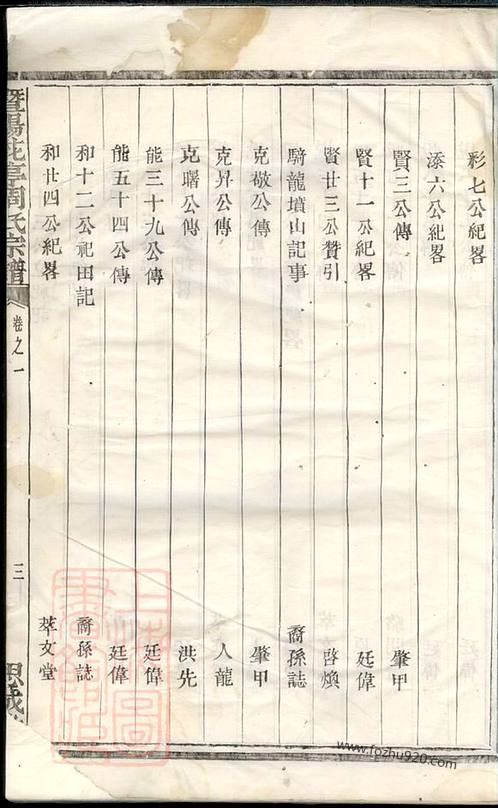 彩七公紀畧
添六公紀畧
賢三公傳 肇甲
賢十一公紀畧 廷偉
賢廿三公贊引 啓煥
騎龍墳山記事 裔孫誌
克敬公傳 肇甲
克昇公傳 人龍
克曙公傳 洪先
能三十九公傳 廷偉
能五十四公傳 廷偉
和十二公祀田記 裔孫誌
和廿四公紀畧 萃文堂
暨陽花亭周氏宗譜 卷之一 三
www.fozhu920.com